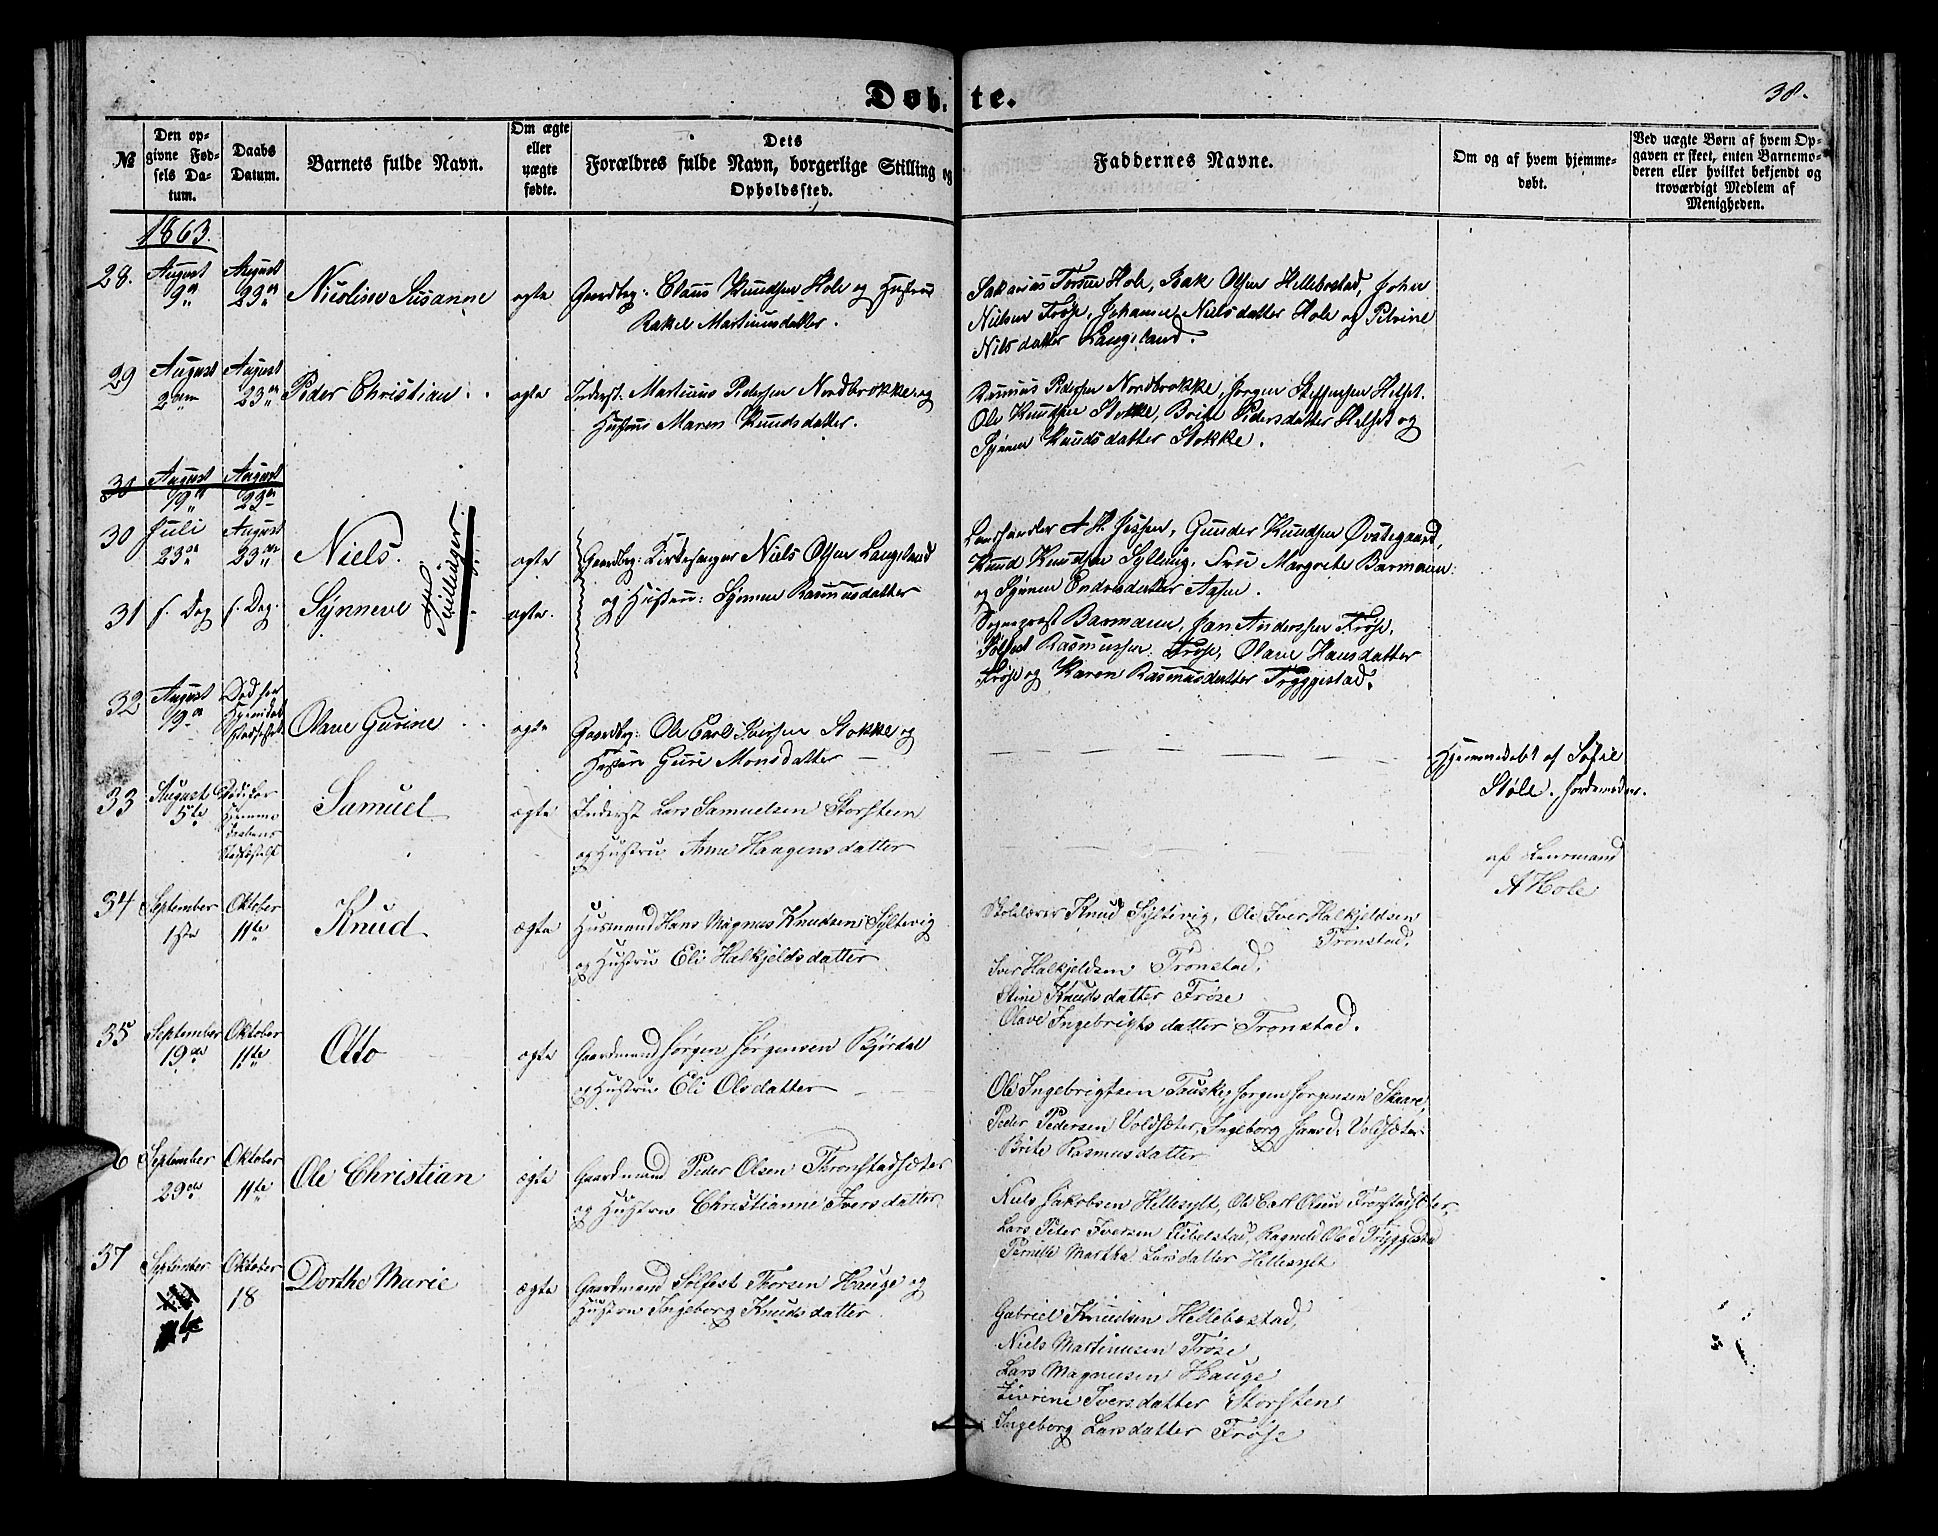 Døb.te.
38.
№
Den opgivne Fødsels Datum.
Daabs Datum.
Barnets fulde Navn.
Om ægte eller uægte fødte.
Dets Forældres fulde Navn, borgerlige Stilling og Opholdssted.
Faddernes Navne.
Om og af hvem hjemmedøbt.
Ved uægte Børn af hvem Opgaven er skeet, enten Barnemoderen eller hvilket bekjendt og troværdigt Medlem af Menigheden.
1863.
28. August 9de August 23de Nicoline Susanne ægte Gaardbrg: Claus Knudsen Hole og Hustrue
Rakel Martinusdatter.
Sakarias Torsen Hole, Bak Olsen Hellebostad, John
Nielsen Frøse, Johanne Nielsdatter Hole og Petrine
Nilsdatter Langeland.
29 August August 23de Peder Christian ægte Inderst. Martinus Pedersen Nordbrokke og
Hustrue Maren Knudsdatter.
Rasmus Pedersen Nordbrokke, Jørgen Steffensen Helset.
Ole Knudsen Stokke, Brite Pedersdatter Helset og
Synnev Knudsdatter Stokke.
30 August 19de August 23de
30 Juli 23de August 23de Niels. ægte Gaardbrg: Kirkesanger Niels Olsen Langeland
Tvillinger.
Landhandler A H. Jessen, Gunder Knudsen Øvstegaard,
Knud Knudsen Sylling, Frue Margrete Barmann
og Synnev Endresdatter Aasen.
31 s. Dag s. Dag. Synneve ægte. og Hustru: Synnev Rasmusdatter
Sogneprest Barmann, Jan Anderssen Frøse,
Solfest Rasmussen Frøse, Olave Hansdatter
Frøse og Karen Rasmusdatter Tryggestad.
32 August 19de Død før Olave Gurine ægte Gaardbrg: Ole Carl Iverssen Stokke og
Hustru Guri Monsdatter
Hjemmedøbt af Sofie
Støle. Jordemoder.
33 August 5te Død før Hjemme Samuel ægte Inderst Lars Samuelsen Storsteen
og Hustru Anne Haagensdatter
af Lensmand
A Hole
34 September 1ste Oktober 11te Knud ægte Husmand Hans Magnus Knudsen Syltevig
og Hustru Eli Halkjeldsdatter
Skolelærer Knud Syltevig, Ole Iver Halkjeldsen
Tronstad,
Iver Halkjeldsen Tronstad,
Stine Knudsdatter Frøse
Olave Ingebrigtsdatter Tronstad.
35 September 19de Oktober 11te Otto ægte Gaardmand Jørgen Jørgensen Bjørdal
og Hustru Eli Olsdatter
Ole Ingebrigtsen Fauske, Jørgen Jørgensen Skaare,
Peder Pedersen Voldsæter, Ingeborg Hansd. Voldsæter
Brite Rasmusdatter
6 September 29de Oktober 11te Ole Christian ægte Gaardmand Peder Olsen Thronstadsæter
og Hustru Christianne Iversdatter
Niels Jakobsen Hellesylt, Ole Carl Olsen Tronstadsæter,
Lars Peter Iversen Ragnele Olsd Tryggestad
Pernille Martha Larsdatter Hellesylt
37 September Oktober 18 Dorthe Marie ægte Gaardmand Solfest Thorsen Hauge og
Hustru Ingeborg Knudsdatter
Gabriel Knudsen Hellebostad,
Niels Martinusen Frøse
Lars Magnusen Hauge
Iversdatter Storsten
Ingeborg Larsdatter Frøse